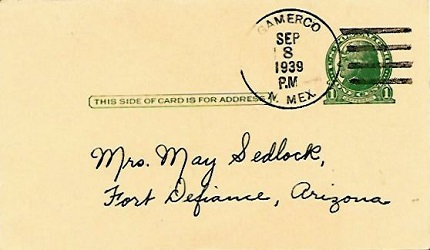 GAMERCO
SEP
8
1939
P.M
N. MEX.
THIS SIDE OF CARD IS FOR ADDRESS
1 1
Mrs. May Sedlock,
Fort Defiance, Arizona